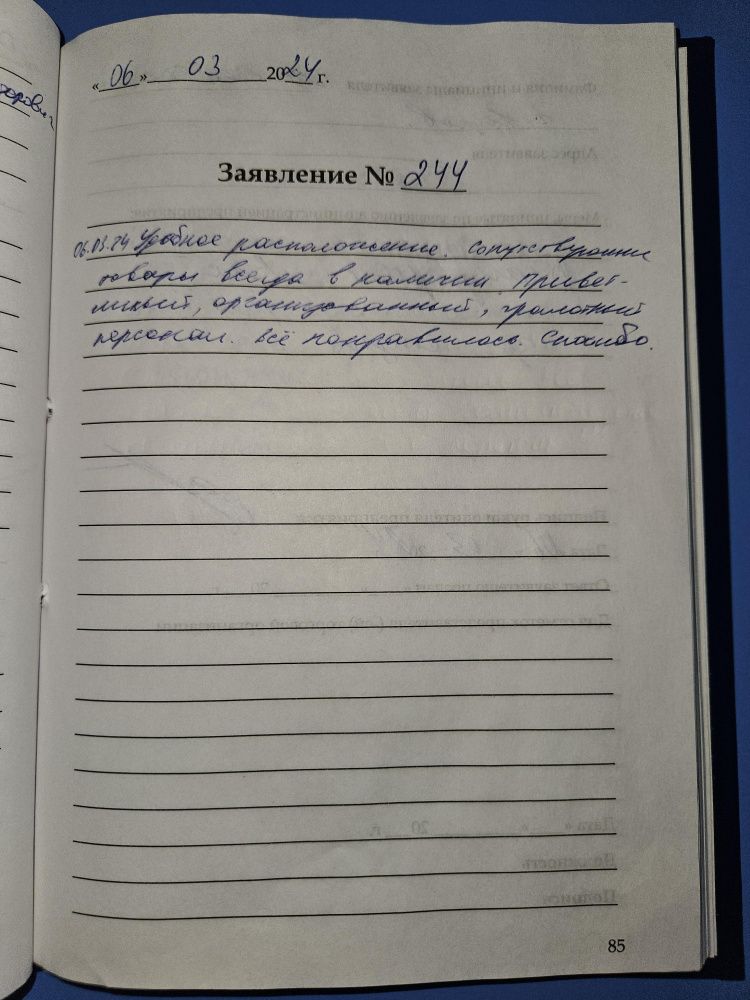 «06» 03 2024 г.
Заявление № 244
06.03.24 Удобное расположение. Сопутствующие
товары всегда в наличии. Привет-
ливый, организованный, грамотный
персонал. Всё понравилось. Спасибо.
85